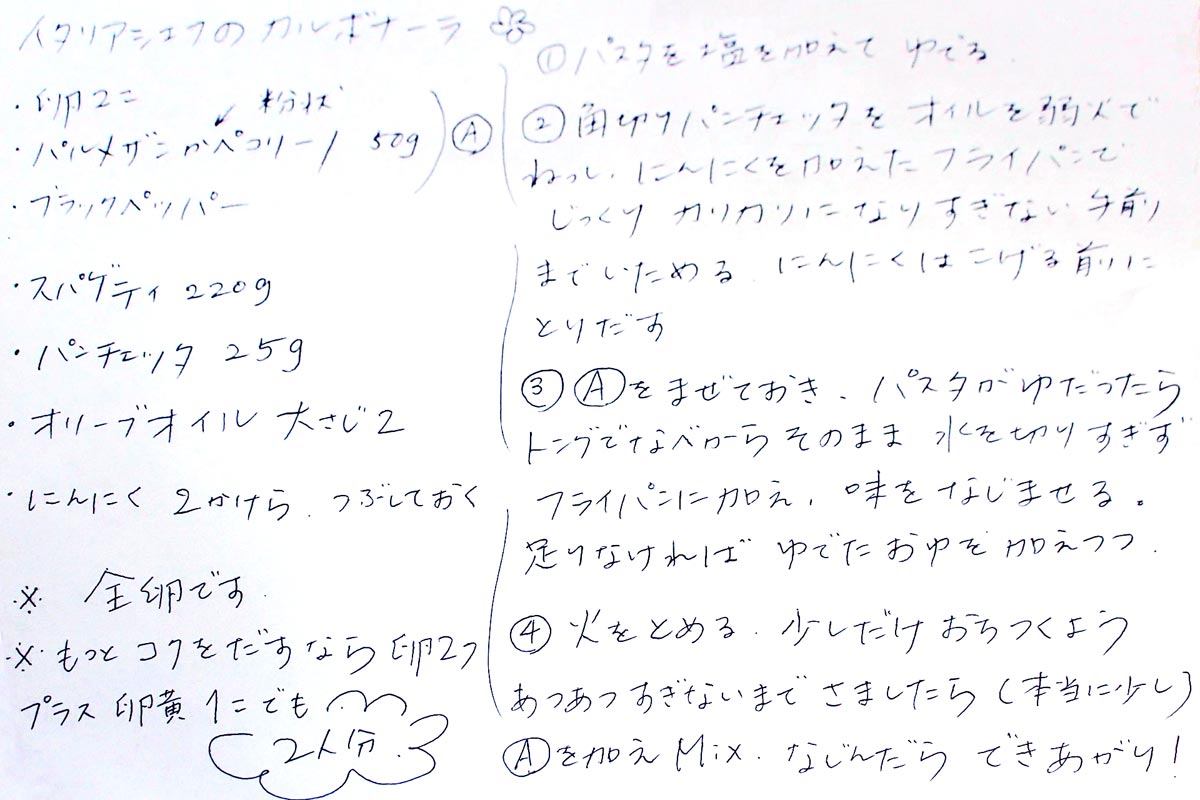 イタリアシェフのカルボナーラ
・卵2こ
粉状
・パルメザンかペコリーノ 50g
Ⓐ
・ブラックペッパー
・スパゲティ 220g
・パンチェッタ 25g
・オリーブオイル 大さじ2
・にんにく 2かけら、つぶしておく
※ 全卵です
※もっとコクをだすなら卵2つ
プラス卵黄1こでも
2人分
①パスタを塩を加えてゆでる
②角切りパンチェッタをオイルを弱火で
ねっし、にんにくを加えたフライパンで
じっくりカリカリになりすぎない手前
までいためる、にんにくはこげる前に
とりだす
③Ⓐをまぜておき、パスタがゆだったら
トングでなべからそのまま水を切りすぎず
フライパンに加え、味をなじませる。
足りなければゆでたおゆを加えつつ、
④火をとめる、少しだけおちつくよう
あつあつすぎないまでさましたら(本当に少し)
Ⓐを加えMix、なじんだらできあがり!